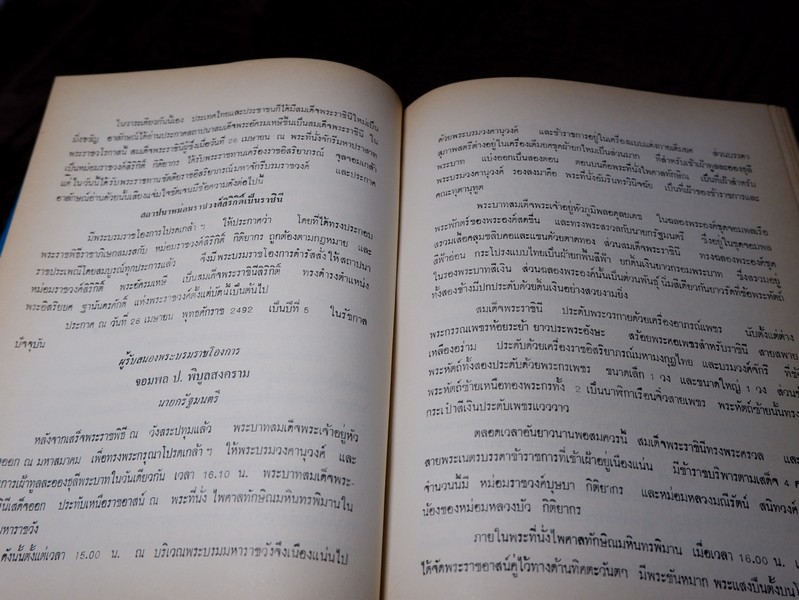 ในวาระเดียวกันนี้เอง ประเทศไทยและประชาชนก็ได้มีสมเด็จพระราชินีใหม่เป็น
มิ่งขวัญ อาลักษณ์ได้อ่านประกาศสถาปนาสมเด็จพระอัครมเหษีขึ้นเป็นสมเด็จพระราชินี ใน
พระราชวโรกาสนี้ สมเด็จพระราชินีผู้ซึ่งเมื่อวันที่ 28 เมษายน ณ พระที่นั่งจักรีมหาปราสาท
เป็นหม่อมราชวงค์สิริกิติ์ กิติยากร ได้รับพระราชทานเครื่องราชอิสริยาภรณ์ จุลจอมเกล้า
แต่ในวันนี้ได้รับพระราชทานขัตติยราชอิสริยาภรณ์มหาจักรีบรมราชวงค์ และประกาศ
อาลักษณ์อ่านด้วยน้ำเสียงแจ่มใสชัดเจนมีข้อความดังต่อไปนี้
สถาปนาหม่อมราชวงค์สิริกิติ์เป็นราชินี
มีพระบรมราชโองการโปรดเกล้าฯ ให้ประกาศว่า โดยที่ได้ทรงประกอบ
พระราชพิธีราชาภิเษกสมรสกับ หม่อมราชวงค์สิริกิติ์ กิติยากร ถูกต้องตามกฎหมาย และ
ราชประเพณีโดยสมบูรณ์ทุกประการแล้ว จึงมีพระบรมราชโองการดำรัสสั่งให้สถาปนา
หม่อมราชวงค์สิริกิติ์ พระอัครมเหษี เป็นสมเด็จพระราชินีสิริกิติ์ ทรงดำรงตำแหน่ง
พระอิสริยยศ ฐานันดรศักดิ์ แห่งพระราชวงค์ตั้งแต่บัดนี้เป็นต้นไป
ประกาศ ณ วันที่ 28 เมษายน พุทธศักราช 2492 เป็นปีที่ 5 ในรัชกาล
ปัจจุบัน
ผู้รับสนองพระบรมราชโองการ
จอมพล ป. พิบูลสงคราม
นายกรัฐมนตรี
หลังจากเสร็จพระราชพิธี ณ วังสระปทุมแล้ว พระบาทสมเด็จพระเจ้าอยู่หัว
ออก ณ มหาสมาคม เพื่อทรงพระกรุณาโปรดเกล้าฯ ให้พระบรมวงศานุวงศ์ และ
การเฝ้าทูลละอองธุลีพระบาทในวันเดียวกัน เวลา 16.10 น. พระบาทสมเด็จพระ-
นีเสด็จออก ประทับเหนือราชอาสน์ ณ พระที่นั่งไพศาลทักษิณมหินทรพิมานใน
มหาราชวัง
ดังนั้นตั้งแต่เวลา 15.00 น. ณ บริเวณพระบรมมหาราชวังจึงเนืองแน่นไป
ด้วยพระบรมวงศานุวงศ์ และข้าราชการอยู่ในเครื่องแบบแต่งกายเต็มยศ ส่วนบรรดา
สุภาพสตรีต่างอยู่ในเครื่องเต็มยศชุดผ้ายกไหมเป็นส่วนมาก ที่สำหรับเข้าเฝ้าทูลละอองธุลี
พระบาท แบ่งออกเป็นสองตอน ตอนบนคือพระที่นั่งไพศาลทักษิณ เป็นที่เฝ้าสำหรับ
พระบรมวงศานุวงศ์ รองลงมาคือ พระที่นั่งอัมรินทรวินิจฉัย เป็นที่เฝ้าของข้าราชการและ
คณะทูตานุทูต
พระบาทสมเด็จพระเจ้าอยู่หัวภูมิพลอดุลยเดช ในฉลองพระองค์ชุดจอมพลเรือ
พระพักตร์ของพระองค์สดชื่น และทรงพระสรวลกับนายกรัฐมนตรี ซึ่งอยู่ในชุดจอมพล
สวมเสื้อคลุมขลิบคอและแขนด้วยตาดทอง ส่วนสมเด็จพระราชินี ทรงฉลองพระองค์ชุด
สีฟ้าอ่อน กระโปรงแบบไทยเป็นผ้ายกพื้นสีฟ้า ยกดิ้นเงินยาวกรอมพระบาท ซึ่งสวมอยู่
ในรองพระบาทสีเงิน ส่วนฉลองพระองค์นั้นเป็นต่วนพันธุ์นิ่มสีเดียวกันยาวรัดที่ข้อพระหัตถ์
ทั้งสองข้างมีปกประดับด้วยดิ้นเงินอย่างสวยงามยิ่ง
สมเด็จพระราชินี ประดับพระวรกายด้วยเครื่องอาภรณ์เพชร นับตั้งแต่ต่าง
พระกรรณเพชรห้อยระย้า ยาวประพระอังษะ สร้อยพระศอเพชรสำหรับราชินี สายสพาย
เหลืองอร่าม ประดับด้วยเครื่องราชอิสริยาภรณ์มหามงกุฎไทย และบรมวงค์จักรี ที่ข้อ
พระหัตถ์ทั้งสองประดับด้วยพระกรเพชร ขนาดเล็ก 1 วง และขนาดใหญ่ 1 วง ส่วนข้
พระหัตถ์ซ้ายเหนือทองพระกรทั้ง 2 เป็นนาฬิกาเรือนจิ๋วสายเพชร พระหัตถ์ซ้ายนั้นทรง
กระเป๋าสีเงินประดับเพชรแวววาว
ตลอดเวลาอันยาวนานพอสมควรนี้ สมเด็จพระราชินีทรงพระสรวล และ
สายพระเนตรบรรดาข้าราชการที่เข้าเฝ้าอยู่เนืองแน่น มีข้าราชบริพารตามเสด็จ 4
จำนวนนี้มี หม่อมราชวงค์บุษบา กิติยากร และหม่อมหลวงมณีรัตน์ สนิทวงค์
น้องของหม่อมหลวงบัว กิติยากร
ภายในพระที่นั่งไพศาลทักษิณมหินทรพิมาน เมื่อเวลา 16.00 น.
ได้จัดพระราชอาสน์คู่ไว้ทางด้านทิศตะวันตก มีพระขันหมาก พระแสงปืนตั้งบน